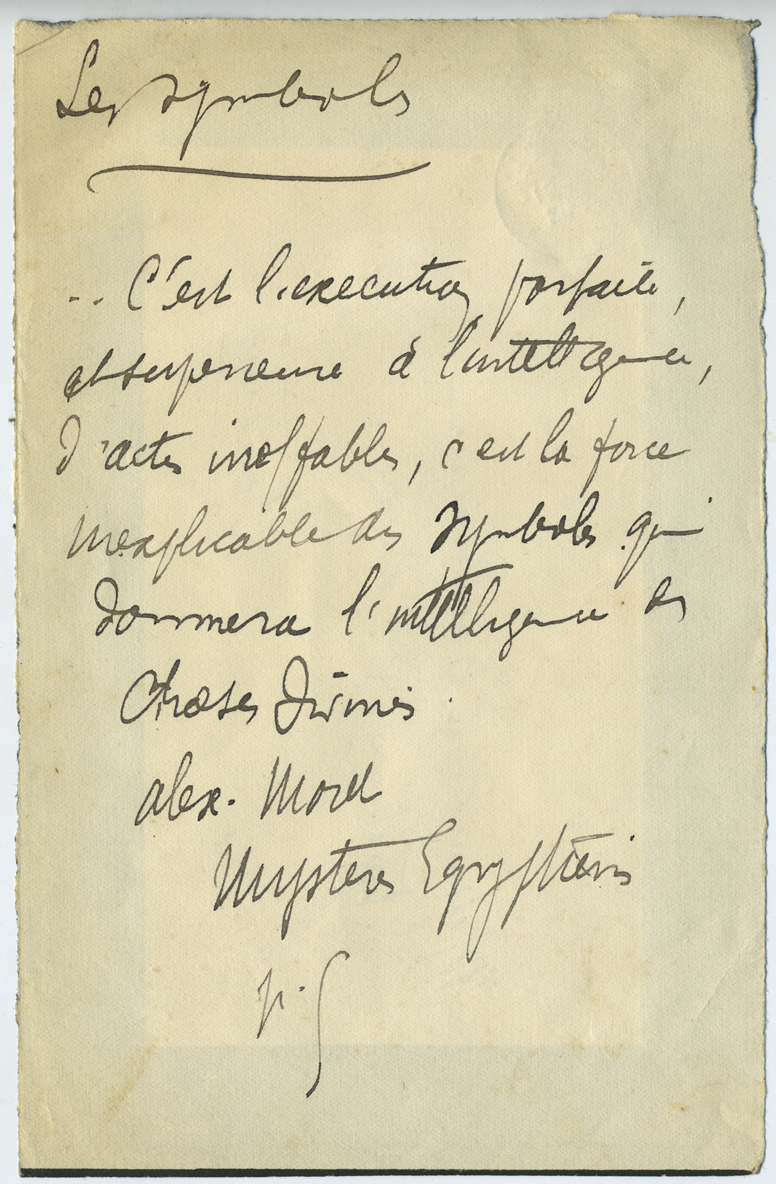 Les symbols
.. C'est l'execution parfaite,
et superieure à l'intelligence,
d'actes ineffables, c'est la force
inexplicable des symboles qui
donnera l'intelligence des
Choses Divines.
alex. Moret
Mysteres Egyptiens
p.